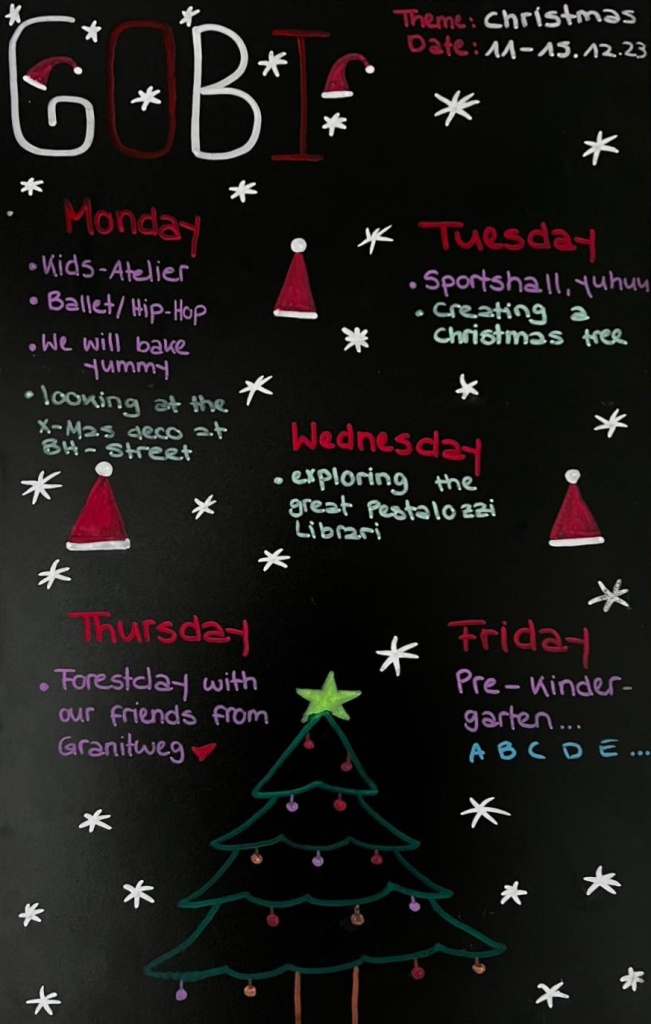 GOBI
Theme: Christmas
Date: 11-15.12.23
Monday
• Kids-Atelier
• Ballet/Hip-Hop
• We will bake
yummy
• looking at the
X-Mas deco at
BH-Street
Tuesday
• Sportshall, yuhuu
• Creating a
Christmas tree
Wednesday
• exploring the
great Pestalozzi
Librari
Thursday
• Forestday with
our friends from
Granitweg
Friday
Pre-Kinder-
garten...
A B C D E ...